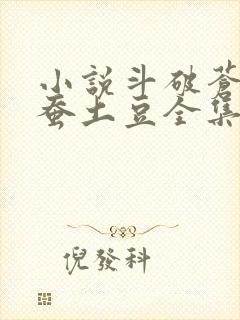 小說斗破蒼
蚕土豆全集
倪發科